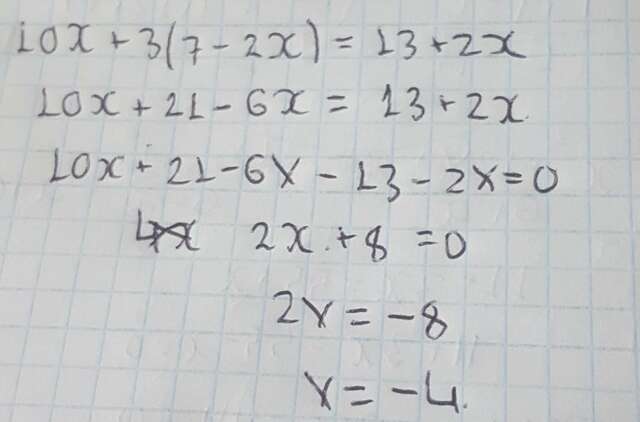 10x + 3(7 - 2x) = 13 + 2x
10x + 21 - 6x = 13 + 2x
10x + 21 - 6x - 13 - 2x = 0
2x + 8 = 0
2x = -8
x = -4.